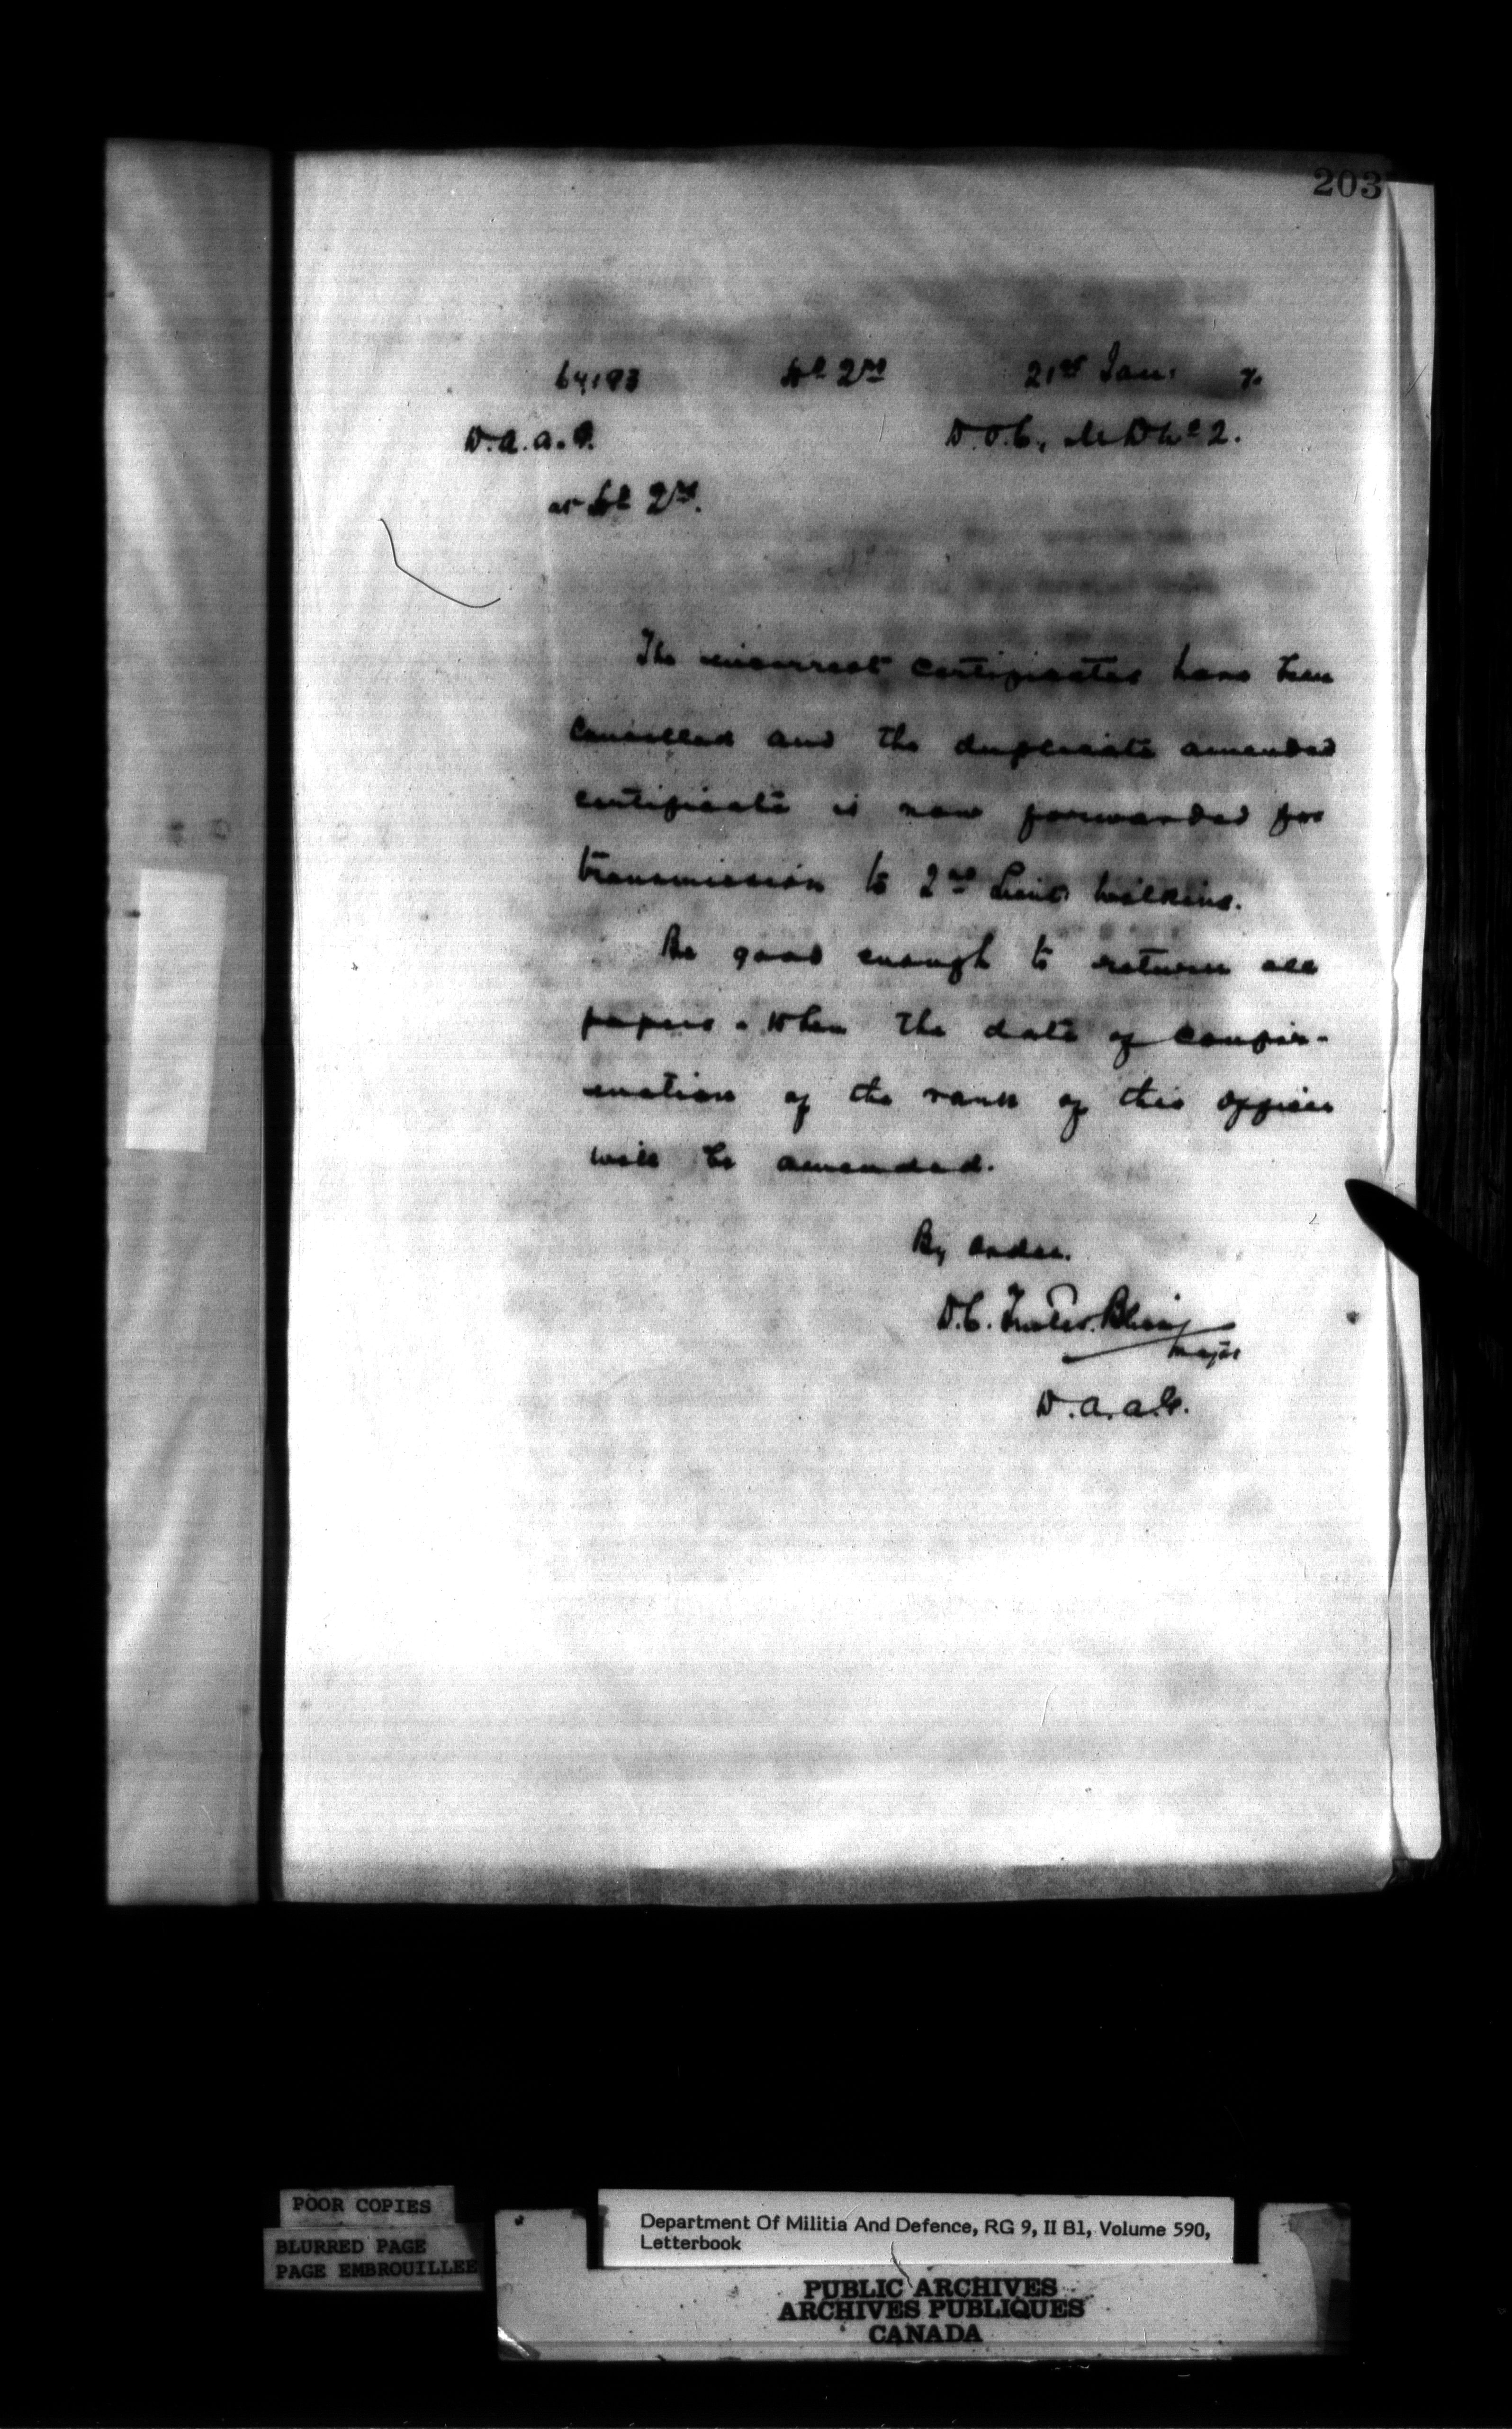 203
64193 Hd Qrs 21st Jan: 7.
D.A.A.G. D.O.C., M D No 2.
at Hd Qrs.
The incorrect certificates have been
cancelled and the duplicate amended
certificate is now forwarded for
transmission to 2nd Lieut. Wilkins.
Be good enough to return all
papers. When the date of confir-
mation of the rank of this officer
will be amended.
By order.
D.C.
Major
D.A.A.G.
POOR COPIES
BLURRED PAGE
PAGE EMBROUILLEE
Department Of Militia And Defence, RG 9, II B1, Volume 590,
Letterbook
PUBLIC ARCHIVES
ARCHIVES PUBLIQUES
CANADA